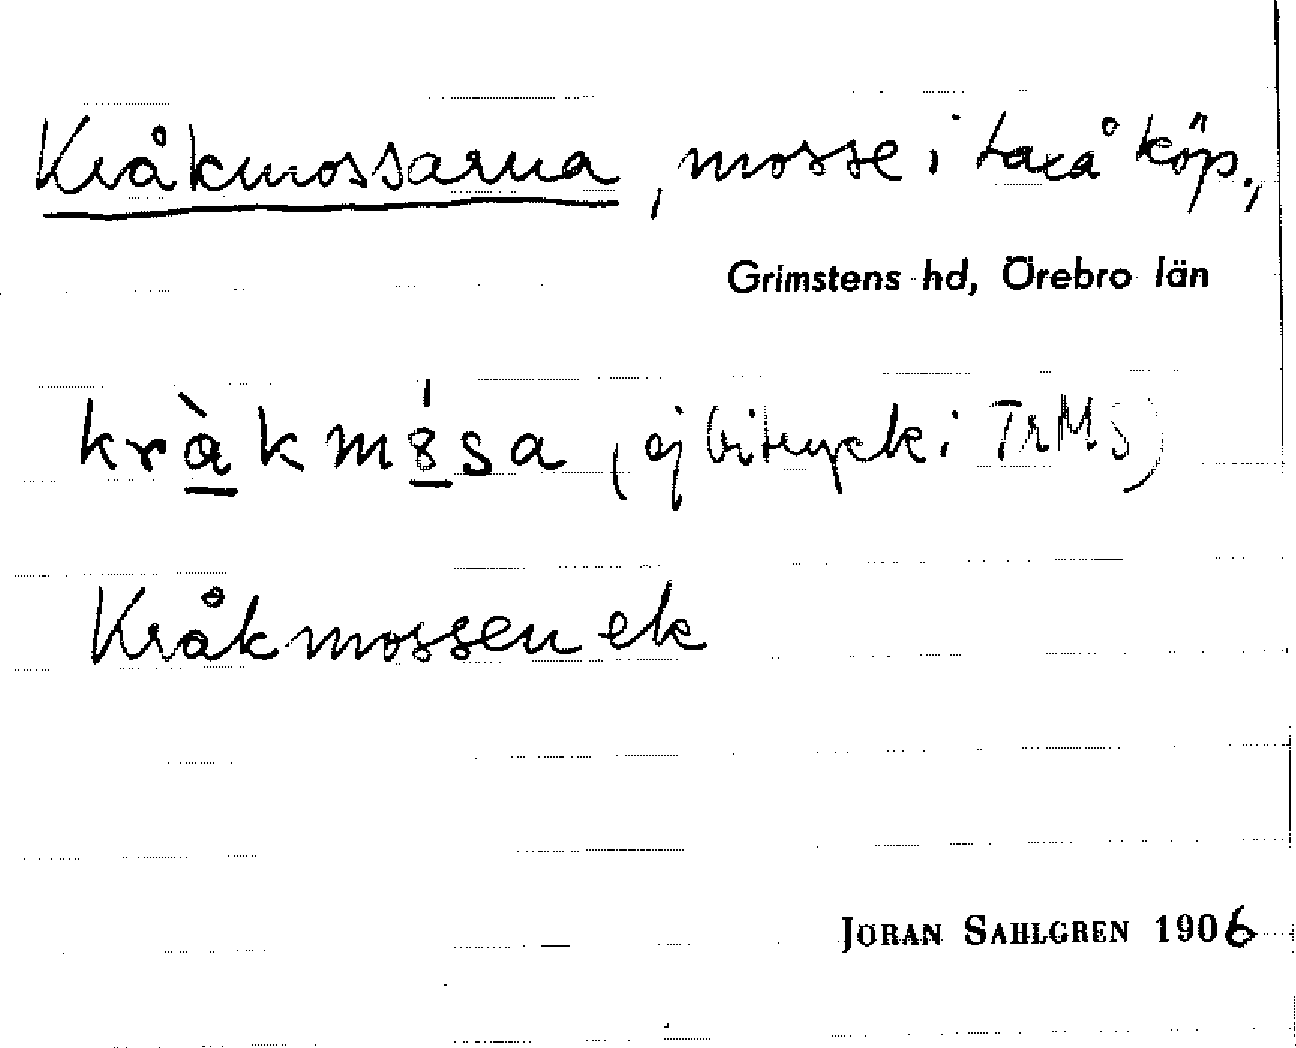 Kråkmossarna, mosse i Laxå köp.,
Grimstens hd, Örebro län
kràkmósa (ej bitryck i TrMS)
Kråkmossen ek
JÖRAN SAHLGREN 1906